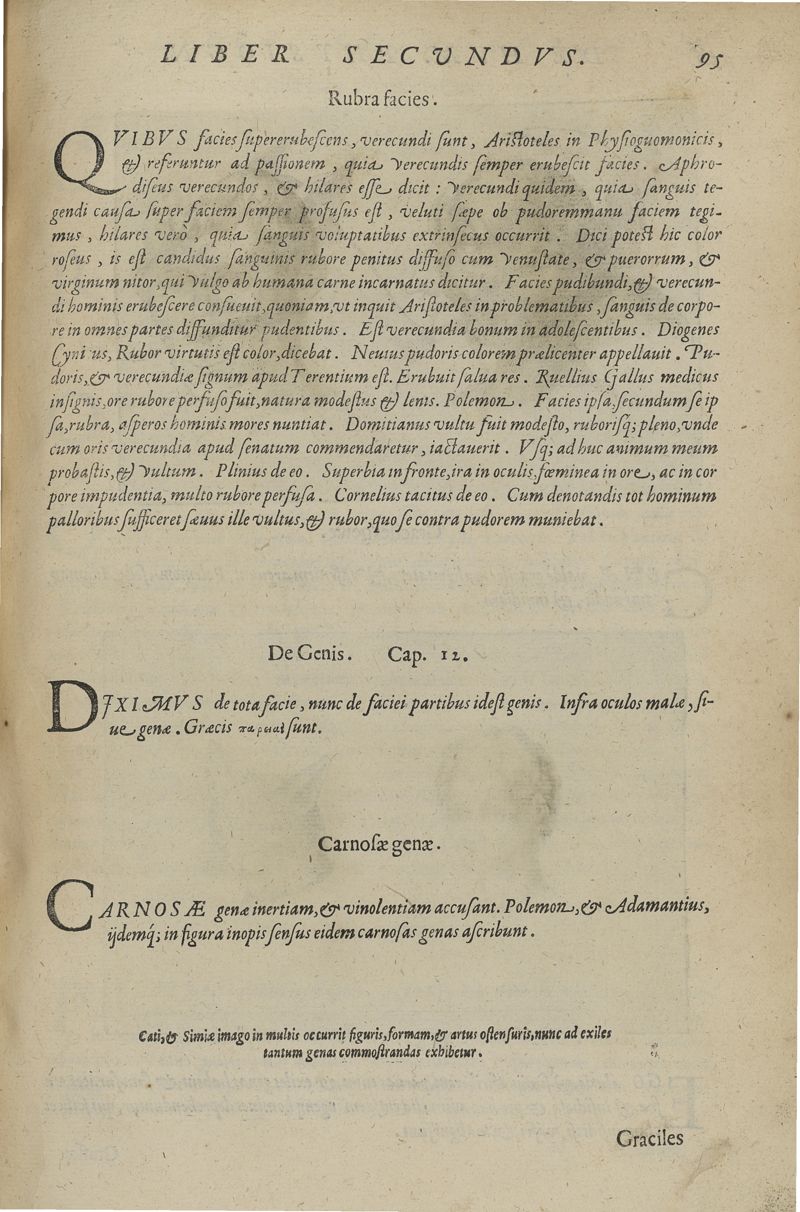 LIBER SECVNDVS. 95
Rubra facies.
QVIBVS facies ſupererubeſcens, verecundi ſunt, Ariſtoteles in Phyſioguomonicis,
& referuntur ad paſſionem, quia verecundis ſemper erubeſcit facies. Aphro-
diſeus verecundos, & hilares eſſe dicit: verecundi quidem, quia ſanguis te-
gendi cauſa ſuper faciem ſemper profuſus eſt, veluti ſæpe ob pudoremmanu faciem tegi-
mus, hilares verò, quia ſanguis voluptatibus extrinſecus occurrit. Dici poteſt hic color
roſeus, is eſt candidus ſanguinis rubore penitus diffuſo cum venuſtate, & puerorrum, &
virginum nitor, qui vulgo ab humana carne incarnatus dicitur. Facies pudibundi, & verecun-
di hominis erubeſcere conſueuit, quoniam, vt inquit Ariſtoteles in problematibus, ſanguis de corpo-
re in omnes partes diffunditur pudentibus. Eſt verecundia bonum in adoleſcentibus. Diogenes
Cyni us, Rubor virtutis eſt color, dicebat. Neuius pudoris colorem prælicenter appellauit. Pu-
doris, & verecundiæ ſignum apud Terentium eſt. Erubuit ſalua res. Ruellius Gallus medicus
inſignis, ore rubore perfuſo fuit, natura modeſtus & lenis. Polemon. Facies ipſa, ſecundum ſe ip
ſa, rubra, aſperos hominis mores nuntiat. Domitianus vultu fuit modeſto, ruborisq; pleno, vnde
cum oris verecundia apud ſenatum commendaretur, iactauerit. Vſq; ad huc animum meum
probaſtis, & vultum. Plinius de eo. Superbia in fronte, ira in oculis, fœminea in ore, ac in cor
pore impudentia, multo rubore perfuſa. Cornelius tacitus de eo. Cum denotandis tot hominum
palloribus ſufficeret ſæuus ille vultus, & rubor, quo ſe contra pudorem muniebat.
De Genis. Cap. 12.
DIXIMVS de tota facie, nunc de faciei partibus ideſt genis. Infra oculos malæ, ſi-
ue genæ. Græcis παρειαὶ ſunt.
Carnoſæ genæ.
CARNOSÆ genæ inertiam, & vinolentiam accuſant. Polemon, & Adamantius,
ijdemq́; in figura inopis ſenſus eidem carnoſas genas aſcribunt.
Cati, & Simiæ imago in multis occurrit figuris, formam, & artus oſtenſuris, nunc ad exiles
tantum genas commoſtrandas exhibetur.
Graciles